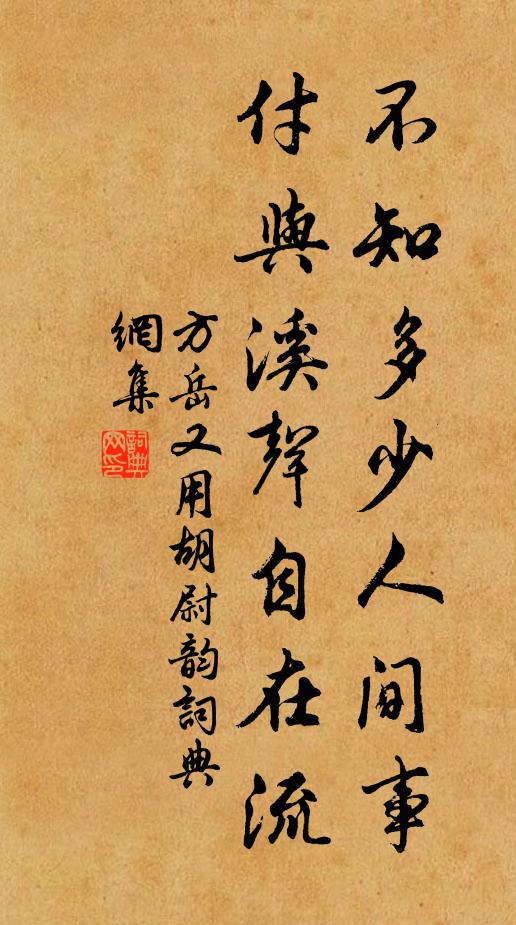 不知多少人间事
付與溪聲自在流
方岳又用胡尉韵詞典
網集
詞典网印